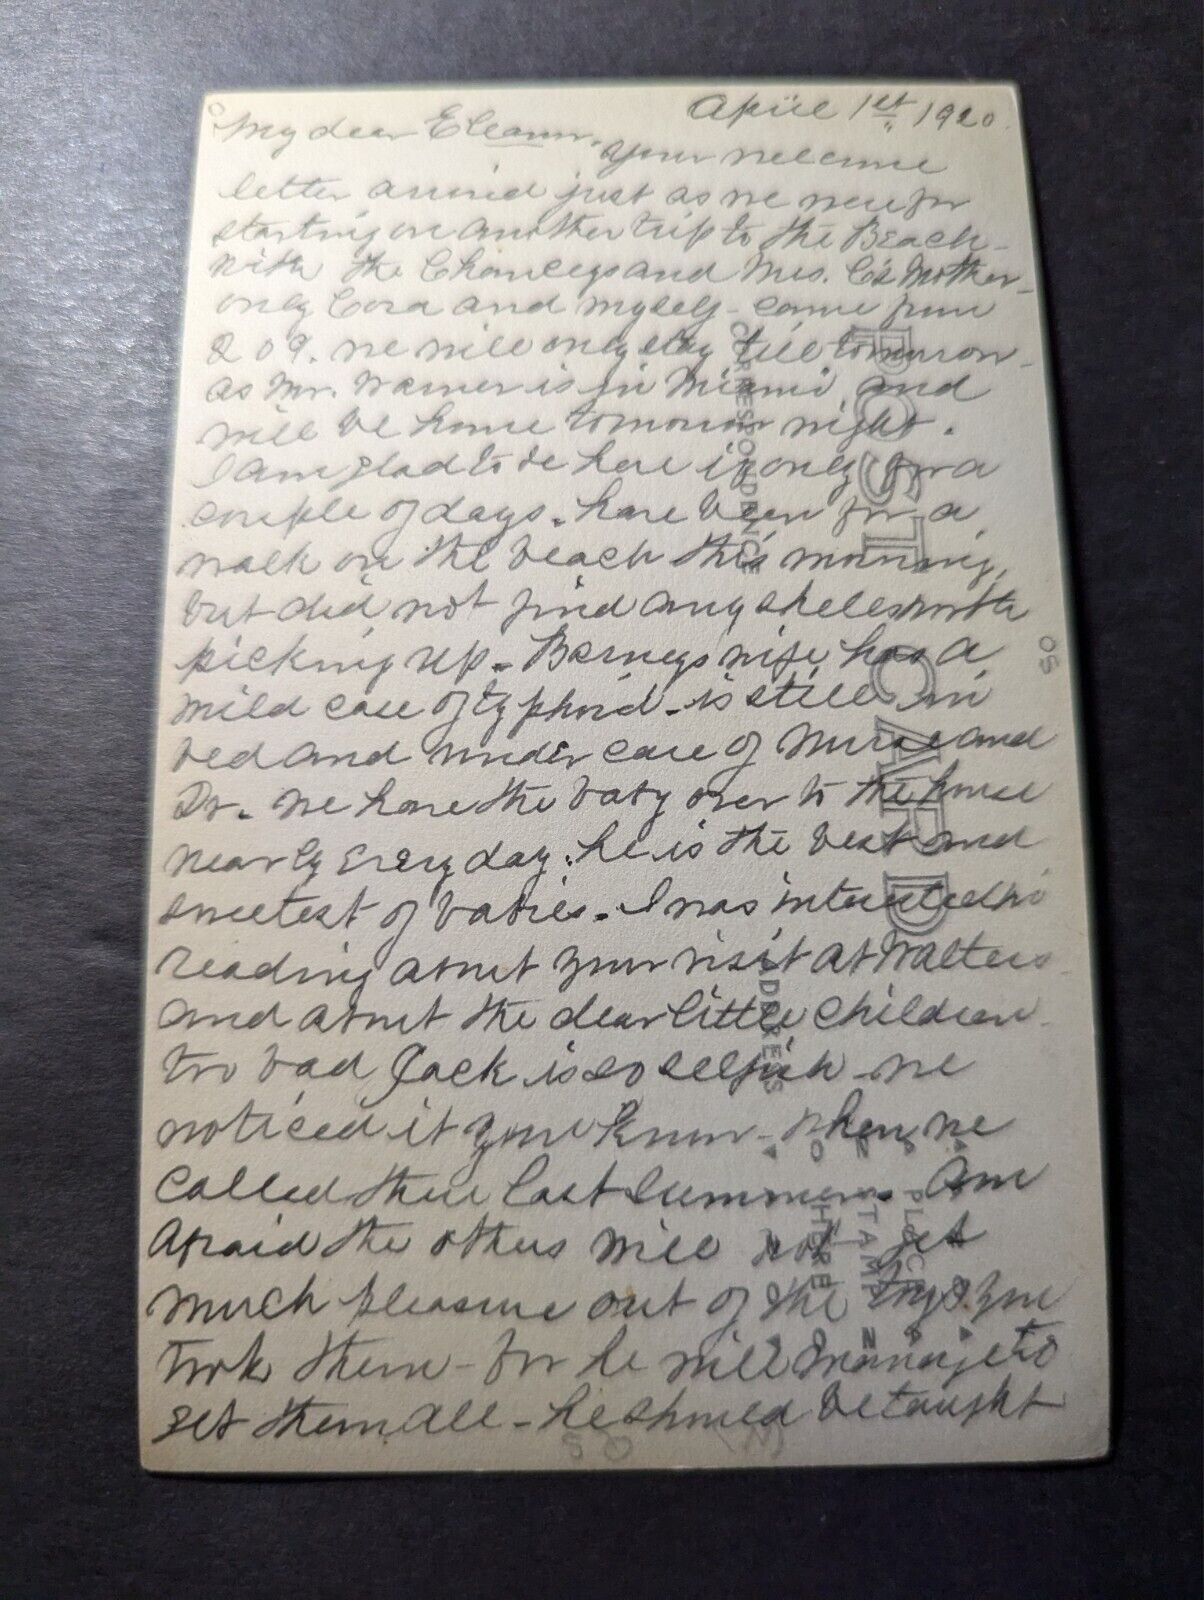 April 1st, 1920.
My dear Eleanor. Your welcome
letter arrived just as we were for
starting on another trip to the Beach -
with the Chanceys and Mrs. C's Mother -
only Cora and myself - came from
209. we will only stay till tomorrow -
as Mr. Warner is in Miami and
will be home tomorrow night.
I am glad to be here if only for a
couple of days. have been for a
walk on the beach this morning,
but did not find any shells worth
picking up - Barneys wife has a
mild case of typhoid - is still in
bed and under care of Nurse and
Dr. We have the baby over to the house
nearly every day. he is the best and
sweetest of babies. I was interested in
reading about your visit at Walters
and about the dear little children -
too bad Jack is so selfish we
noticed it you know - when we
called there last summer. Am
afraid the others will not get
much pleasure out of the toys you
took them - for he will manage to
get them all - he should be taught
POST CARD
CORRESPONDENCE
ADDRESS
PLACE
STAMP
HERE